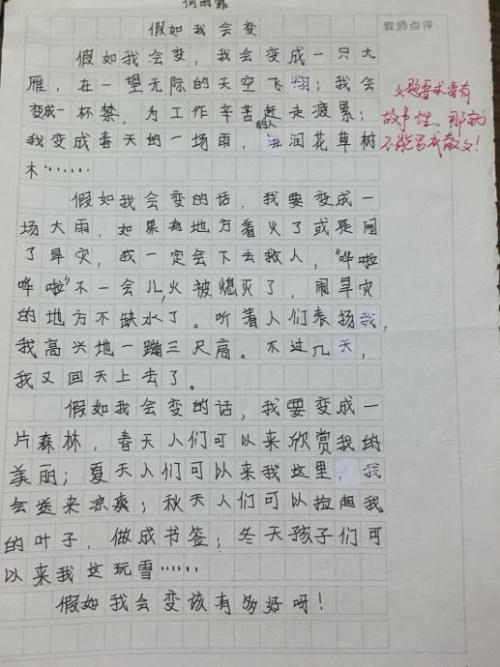 何雨霏
假如我会变
教师点评:
假如我会变，我会变成一只大
雁，在一望无际的天空飞翔；我会
变成一杯茶，为工作辛苦的人赶走疲累；
我变成春天的一场雨，滋润花草树
木……
文题要求要有
故事性，那就
不能写成散文！
假如我会变的话，我要变成一
场大雨，如果有地方着火了或是闹
了旱灾，我一定会下去救人，“哗啦
哗啦”不一会儿，火被熄灭了，闹旱灾
的地方不缺水了。听着人们表扬我，
我高兴地一蹦三尺高。不过几天，
我又回天上去了。
假如我会变的话，我要变成一
片森林，春天人们可以来欣赏我的
美丽；夏天人们可以来我这里，我
会送来凉爽；秋天人们可以捡起我
的叶子，做成书签；冬天孩子们可
以来我这玩雪……
假如我会变该有多好呀！